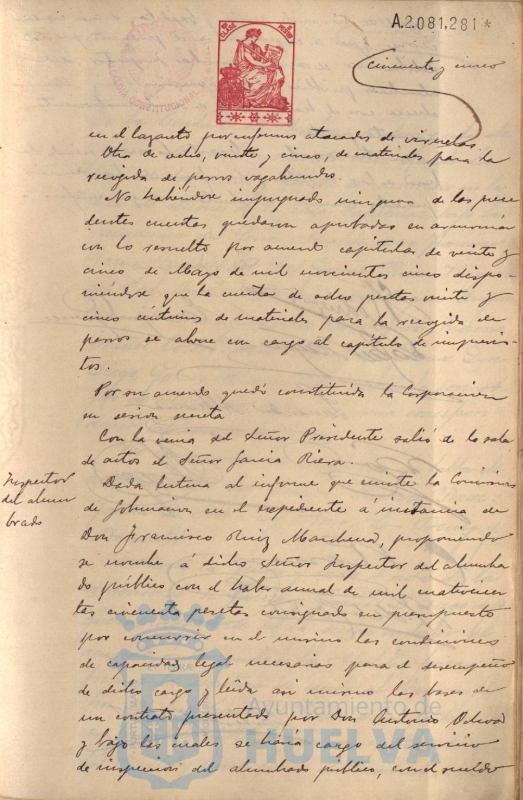 A.2.081.281*
cincuenta y cinco
en el lazareto por enfermos atacados de viruelas.
Otra de ocho, veinte y cinco, de materiales para la
recogida de perros vagabundos.
No habiéndose impugnado ninguna de las prece
dentes cuentas quedaron aprobadas en armonía
con lo resuelto por acuerdo capitular de veinte y
cinco de Mayo de mil novecientos cinco dispo-
niéndose que la cuenta de ocho pesetas veinte y
cinco céntimos de materiales para la recogida de
perros se abone con cargo al capítulo de imprevis-
tos.
Por su acuerdo quedó constituida la Corporacion
en sesion secreta
Con la venia del Señor Presidente salió de la sala
de actos el Señor Garcia Riera.
Inspector
del alum
brado
Dada lectura al informe que emite la Comision
de Gobernacion en el expediente á instancia de
Don Francisco Ruiz Marchena, proponiendo
se nombre á dicho Señor Inspector del alumbra
do público con el haber anual de mil cuatrocien
tas cincuenta pesetas consignado en presupuesto
por concurrir en el mismo las condiciones
de capacidad legal necesarias para el desempeño
de dicho cargo y leida asi mismo las bases de
un contrato presentado por Don Antonio
y bajo las cuales se haria cargo del servicio
de inspeccion del alumbrado público, con el sueldo
Ayuntamiento de
HUELVA